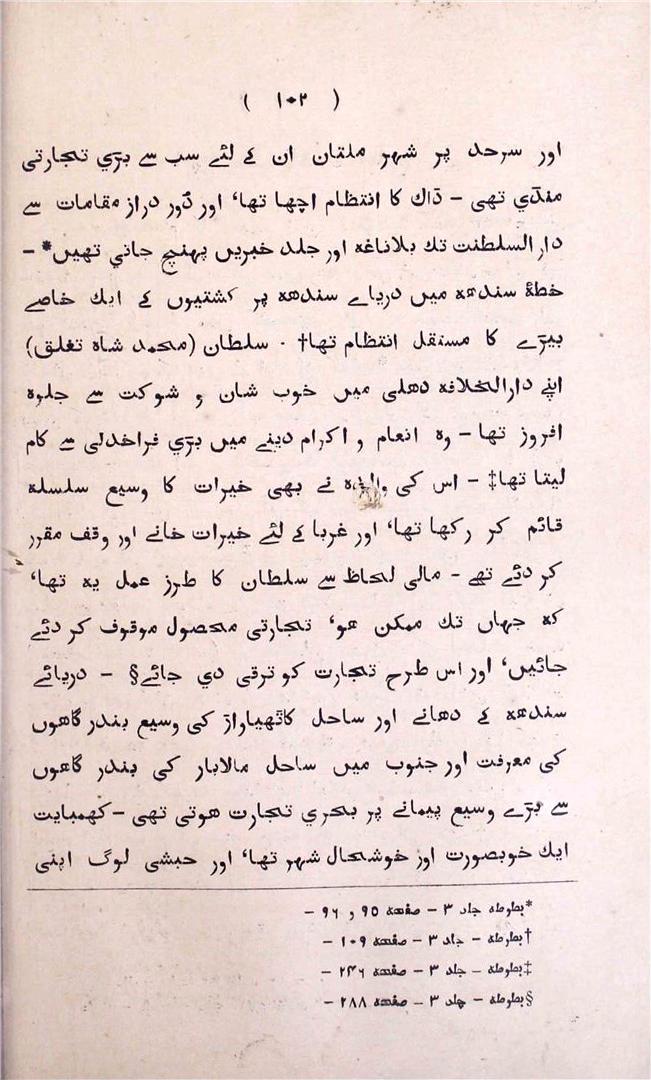 ( ۱۰۲ )
اور سرحد پر شہر ملتان ان کے لئے سب سے بڑي تجارتی
منڈي تھی - ڈاك کا انتظام اچھا تھا، اور دُور دراز مقامات سے
دارالسلطنت تك بلاناغہ اور جلد خبریں پہنچ جاتي تھیں* -
خطۂ سندھہ میں دریاے سندھہ پر کشتیوں کے ایك خاصے
بیڑے کا مستقل انتظام تھا† - سلطان (محمد شاہ تغلق)
اپنے دارالخلافہ دھلی میں خوب شان و شوکت سے جلوہ
افروز تھا - وہ انعام و اکرام دینے میں بڑي فراخدلی سے کام
لیتا تھا‡ - اس کی والدہ نے بھی خیرات کا وسیع سلسلہ
قائم کر رکھا تھا، اور غربا کے لئے خیرات خانے اور وقف مقرر
کر دئے تھے - مالی لحاظ سے سلطان کا طرز عمل یہ تھا،
کہ جہاں تك ممکن ھو، تجارتی محصول موقوف کر دئے
جائیں، اور اس طرح تجارت کو ترقی دي جائے§ - دریائے
سندھہ کے دھانے اور ساحل کاٹھیاواڑ کی وسیع بندر گاھوں
کی معرفت اور جنوب میں ساحل مالابار کی بندر گاھوں
سے بڑے وسیع پیمانے پر بحري تجارت ھوتی تھی - کھمبایت
ایك خوبصورت اور خوشحال شہر تھا، اور حبشی لوگ اپنی
*بطوطہ جلد ۳ - صفحہ ۹۵ و ۹۶ -
†بطوطہ - جلد ۳ - صفحہ ۱۰۹ -
‡بطوطہ - جلد ۳ - صفحہ ۲۴۶ -
§بطوطہ - جلد ۳ - صفحہ ۲۸۸ -